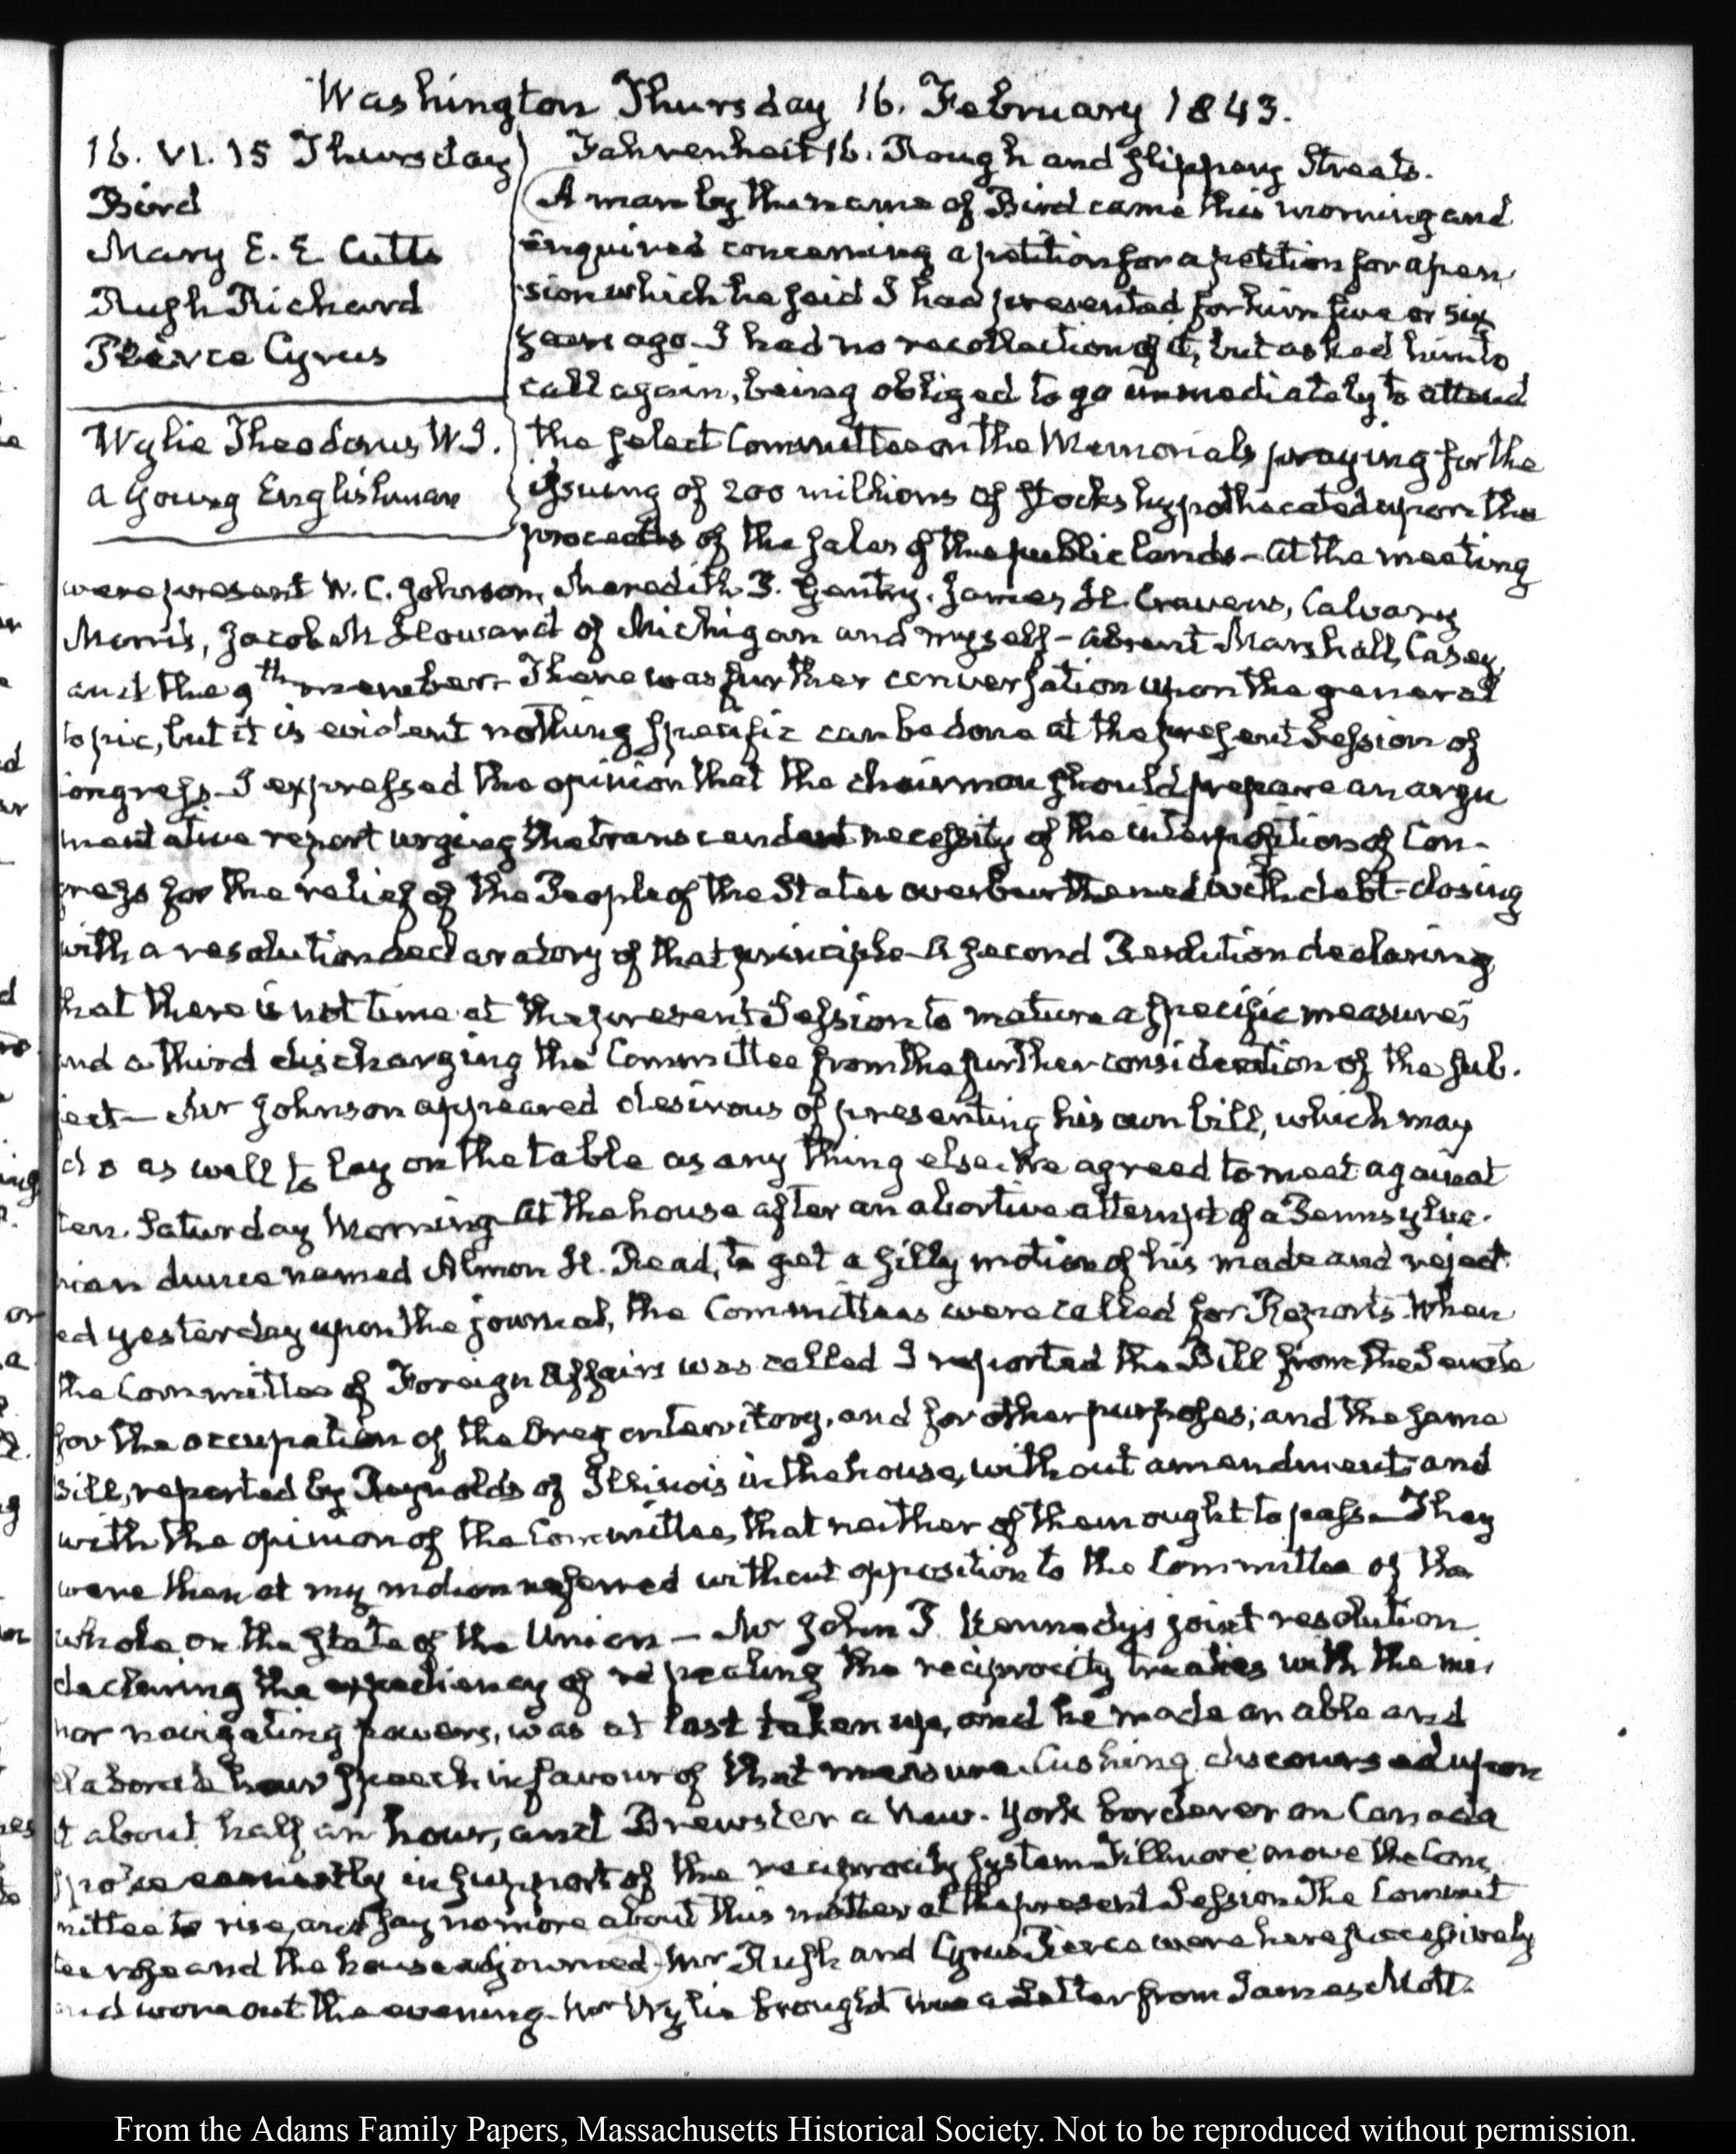 Washington Thursday 16. February 1843.
16. VI. 15 Thursday
Bird
Mary E. E Cutts
Rush Richard
Peirce Cyrus
Wylie Theodorus W.J.
a young Englishman
Fahrenheit 16. Rough and slippery Streets.
A man by the name of Bird came this morning and
enquired concerning a petition for a petition for a pen
sion which he said I had presented for him five or six
years ago. I had no recollection of it, but asked him to
call again, being obliged to go immediately to attend
the select Committee on the Memorials praying for the
issuing of 200 millions of stocks hypothecated upon the
proceeds of the sales of the public lands - At the meeting
were present W. C. Johnson, Meredith P. Gentry. James H. Cravens, Calvary
Morris, Jacob M Howard of Michigan and myself - absent Marshall, Casey,
and the 9th member - There was further conversation upon the general
topic, but it is evident nothing specific can be done at the present Session of
Congress - I expressed the opinion that the chairman should prepare an argu
mentative report urging the transcendent necessity of the interposition of Con-
gress for the relief of the People of the States overburthened with debt - closing
with a resolution declaratory of that principle - A second Resolution declaring
that there is not time at the present Session to mature a specific measure;
and a third discharging the Committee from the further consideration of the sub-
ject - Mr Johnson appeared desirous of presenting his own bill, which may
do as well to lay on the table as any thing else. We agreed to meet again at
ten. Saturday Morning - At the house after an abortive attempt of a Pennsylva-
nian dunce named Almon H. Read, to get a silly motion of his made and reject-
ed yesterday upon the journal, the Committees were called for Reports. When
the Committee of Foreign Affairs was called I reported the Bill from the Senate
for the occupation of the Oregon territory, and for other purposes; and the same
bill, reported by Reynolds of Illinois in the house, without amendment and
with the opinion of the Committee, that neither of them ought to pass - They
were then at my motion referred without opposition to the Committee of the
whole on the state of the Union - Mr John P. Kennedy's joint resolution
declaring the expediency of repealing the reciprocity treaties with the mi-
nor navigating powers, was at last taken up, and he made an able and
elaborate hour speech in favour of that measure. Cushing discoursed upon
it about half an hour, and Brewster a New-York borderer on Canada
spoke earnestly in support of the reciprocity system - Fillmore move the Com
mittee to rise, and say no more about this matter at the present Session. The Commit
tee rose and the house adjourned - Mr Rush and Cyrus Peirce were here successively
and wore out the evening - Mr Wylie brought me a Letter from James Mott.
From the Adams Family Papers, Massachusetts Historical Society. Not to be reproduced without permission.